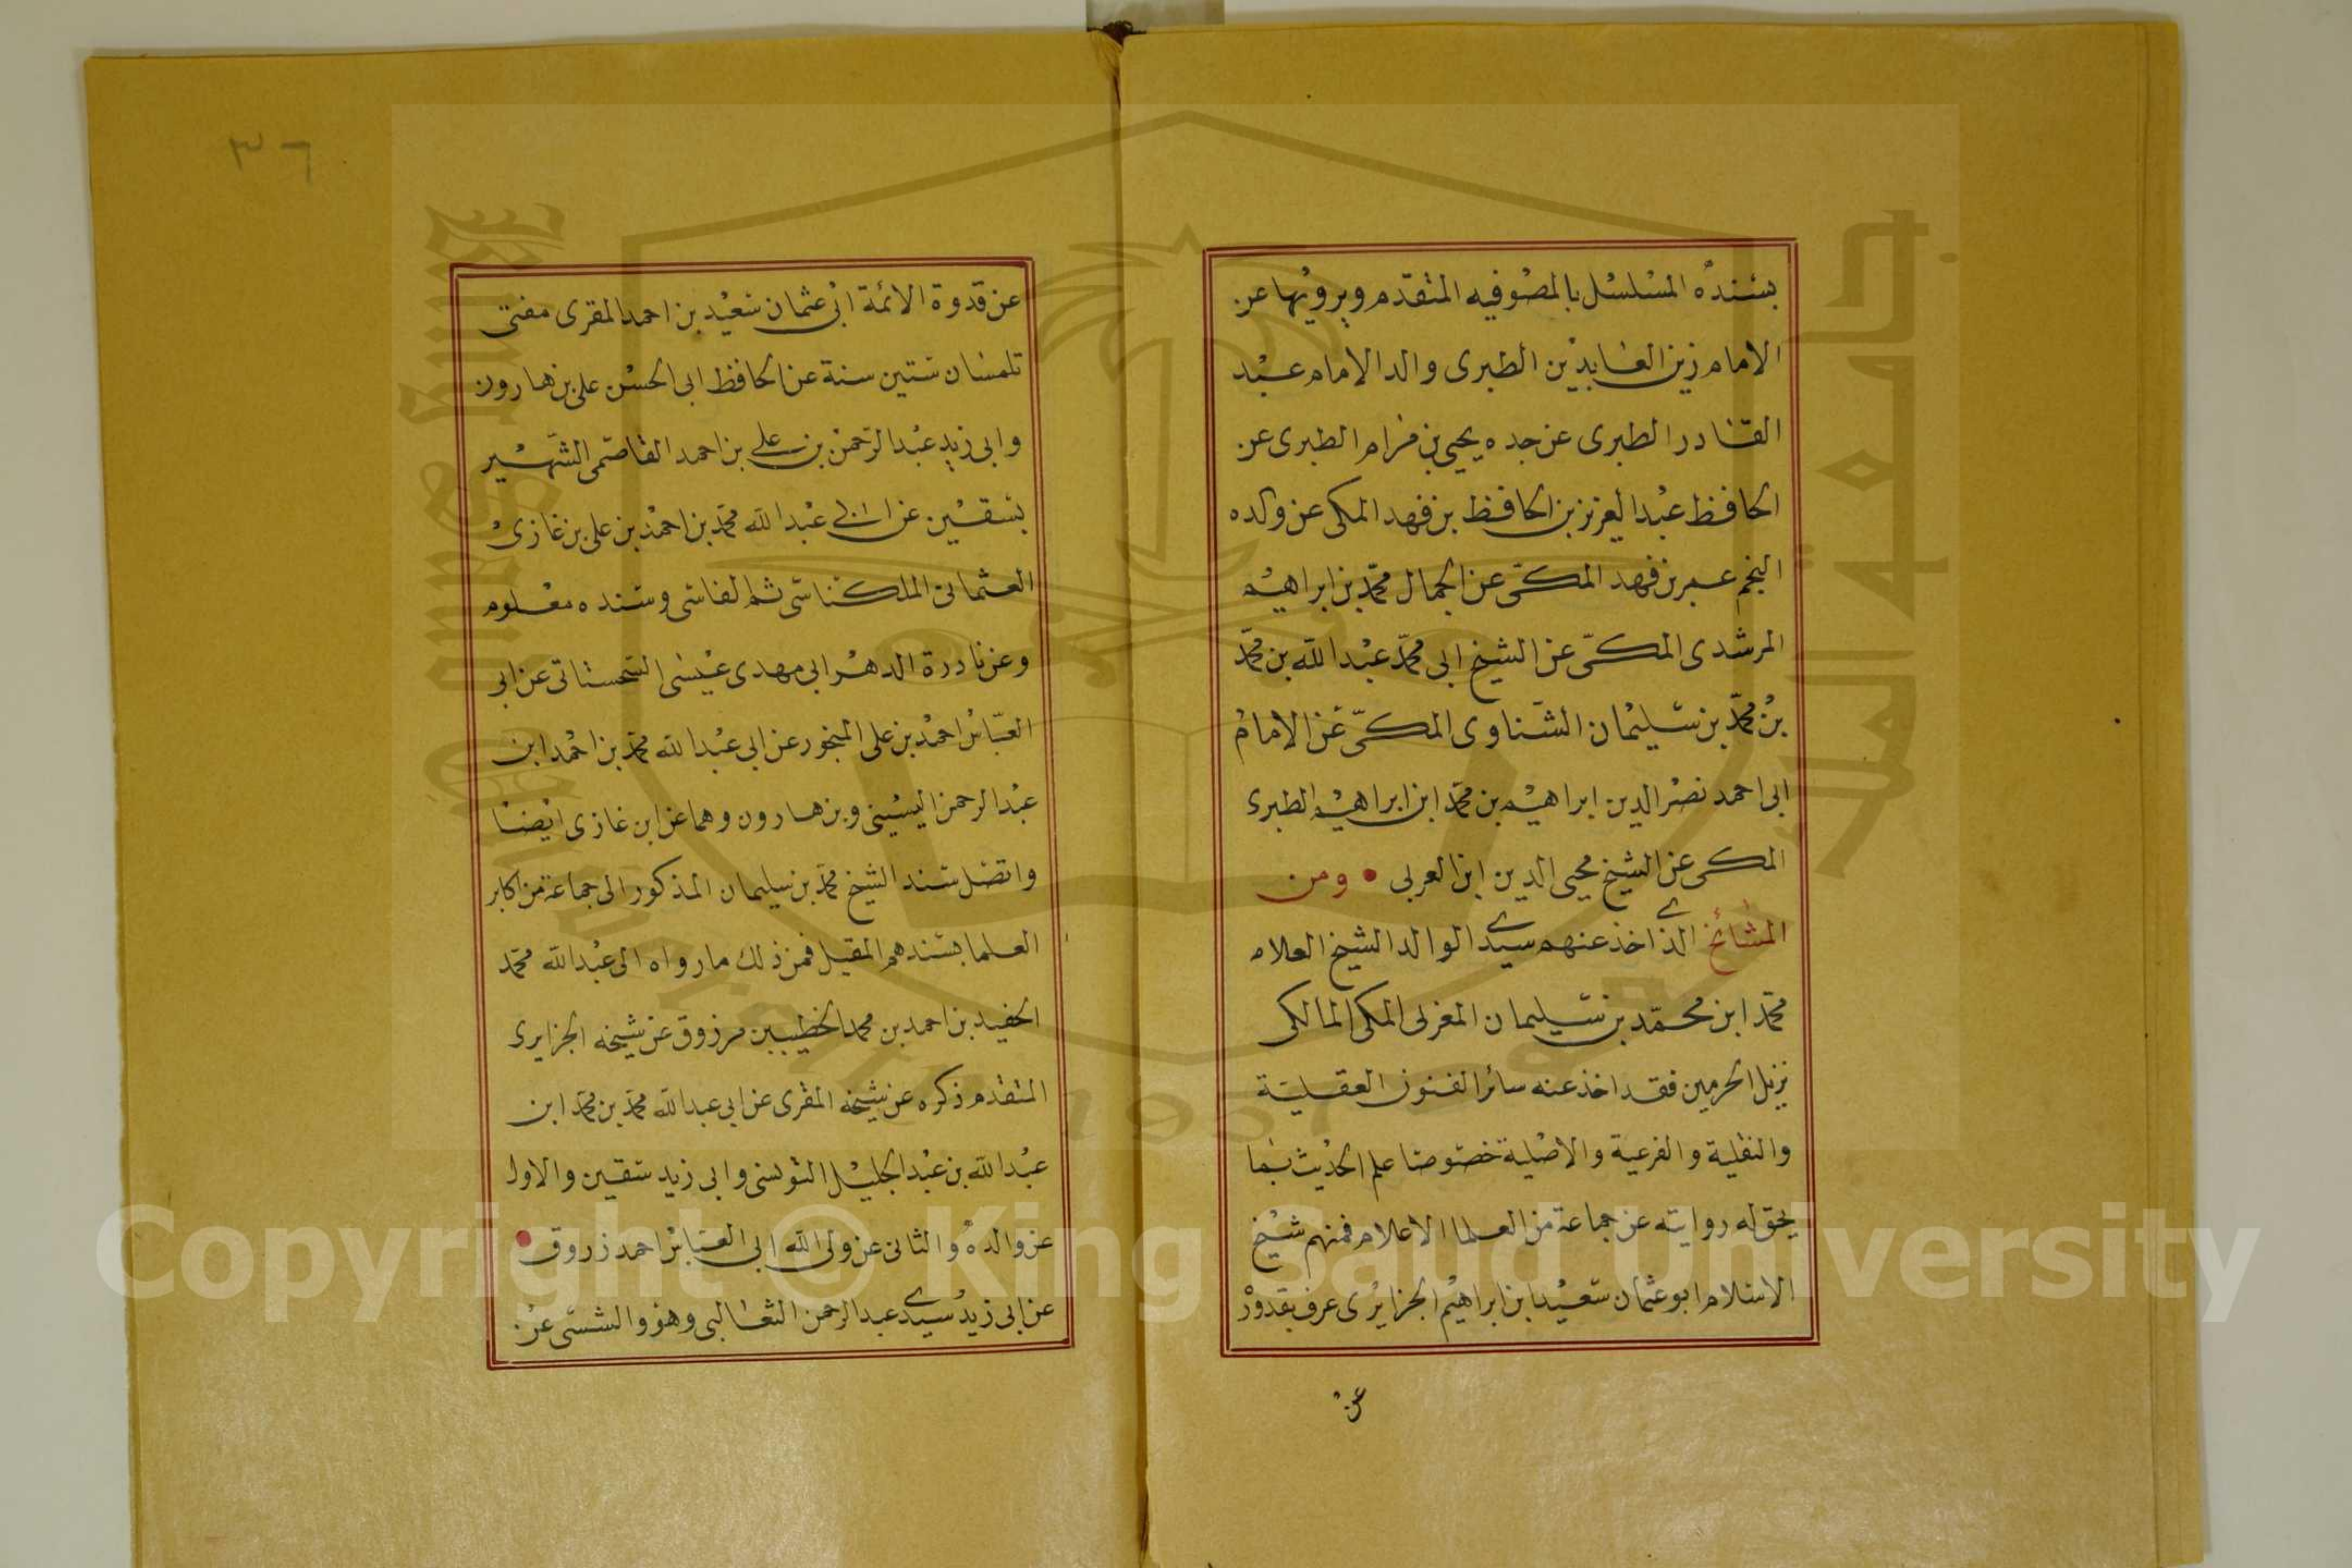 بسنده المسلسل بالمصوفيه المتقدم ويرويها عن
الامام زين العابدين الطبرى والد الامام عبد
القادر الطبرى عن جده يحيى بن مزام الطبرى عن
الحافظ عبد العزيز بن الحافظ بن فهد المكى عن والده
النجم عمر بن فهد المكى عن الجمال محمد بن ابراهيم
المرشدى المكى عن الشيخ ابى محمد عبد الله بن محمد
بن محمد بن سليمان الشناوى المكى عن الامام
ابى احمد نصر الدين ابراهيم بن محمد ابن ابراهيم الطبرى
المكى عن الشيخ محيى الدين ابن العربى • ومن
المشائخ الذى اخذ عنهم سيدى الوالد الشيخ العلام
محمد ابن محمد بن سليمان المغربى المكى المالكى
نزيل الحرمين فقد اخذ عنه سائر الفنون العقلية
والنقلية والفرعية والاصلية خصوصا علم الحديث بما
يحق له روايته عن جماعة من العلما الاعلام فمنهم شيخ
الاسلام ابو عثمان سعيد ابن ابراهيم الجزايرى عرف بقدور
عن
٣٦
عن قدوة الائمة ابى عثمان سعيد بن احمد المقرى مفتى
تلمسان ستين سنة عن الحافظ ابى الحسن على بن هارون
وابى زيد عبد الرحمن بن على بن احمد القاصمى الشهير
بسقين عن ابى عبد الله محمد بن احمد بن على بن غازى
العثمانى الملكناسى ثم الفاسى وسنده معلوم
وعن نادرة الدهر ابى مهدى عيسى السحستانى عن ابى
العباس احمد بن على المنجور عن ابى عبد الله محمد بن احمد ابن
عبد الرحمن اليسينى وبن هارون وهما عن ابن غازى ايضا
واتصل سند الشيخ محمد بن سليمان المذكور الى جماعة من اكابر
العلما بسندهم المقيل فمن ذلك ما رواه الى عبد الله محمد
الحفيد بن احمد بن محمد الخطيب بن مرزوق عن شيخه الجزايرى
المتقدم ذكره عن شيخه المقرى عن ابى عبد الله محمد بن محمد ابن
عبد الله بن عبد الجليل التونسى وابى زيد سقين والاول
عن والده والثانى عن ولى الله ابى العباس احمد زروق •
عن ابى زيد سيدى عبد الرحمن الثعالبى وهو والشسى عن
Copyright © King Saud University
1957